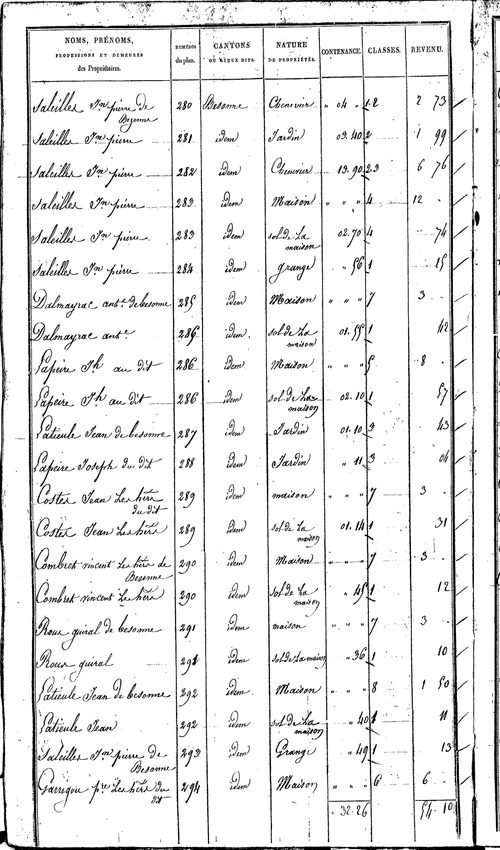 NOMS, PRÉNOMS, PROFESSIONS ET DEMEURES des Propriétaires. NUMÉROS du plan. CANTONS OU LIEUX DITS. NATURE DE PROPRIÉTÉS. CONTENANCE. CLASSES. REVENU.
Saleilles Jn pierre de Bezonne 280 Besonne Chenevier " 04 " 1.2 2 73
Saleilles Jn pierre 281 idem Jardin 03.40 2 1 99
Saleilles Jn pierre 282 idem Chenevier 13.90 2.3 6 76
Saleilles Jn pierre 283 idem Maison " " " 4 12
Saleilles Jn pierre 283 idem sol de La maison 02.70 4 74
Saleilles Jn pierre 284 idem grange " 56 1 15
Dalmayrac ant.e de besonne 285 idem Maison " " " 7 3
Dalmayrac ant.e 286 idem sol de La maison 01.55 1 42
Papeire Jh au dit 286 idem Maison " " " 5 8
Papeire Jh au dit 286 idem sol de La maison 02.10 1 57
Jean de besonne 287 idem Jardin 01.10 3 43
Papeire Joseph du dit 288 idem Jardin " 11 3 04
Costes Jean Les hérs du dit 289 idem maison " " " 7 3
Costes Jean Les hérs 289 idem sol de La maison 01.14 1 31
Combret vincent Les hérs de Besonne 290 idem Maison " " 7 3
Combret vincent Les hérs 290 idem sol de La maison " 45 1 12
Roux guiral de besonne 291 idem maison " " " 7 3
Roux guiral 291 idem sol de La maison " 36 1 10
Jean de besonne 292 idem Maison " " 8 1 50
Jean 292 idem sol de La maison " 40 1 11
Saleilles Jn pierre de Besonne 293 idem Grange " 49 1 13
Garrigou pre Les hérs du dit 294 idem Maison " " " 6 6
32.26 54 10